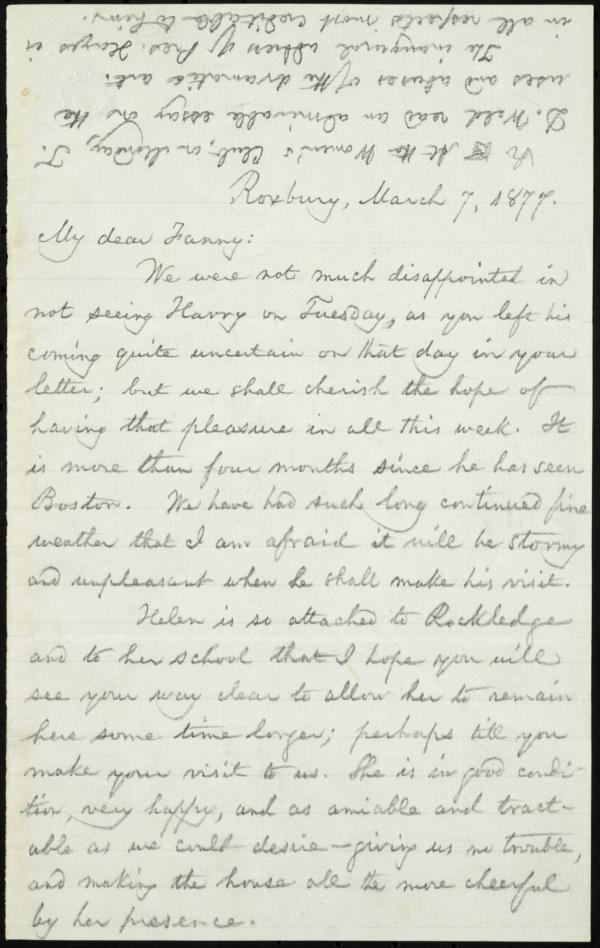 At the Women's Club, on Monday, J.
D. Weld read an admirable essay on the
uses and abuses of the dramatic art.
The inaugural address of Pres. Hayes is
in all respects most creditable to him.
Roxbury, March 7, 1877.
My dear Fanny:
We were not much disappointed in
not seeing Harry on Tuesday, as you left his
coming quite uncertain on that day in your
letter; but we shall cherish the hope of
having that pleasure in all this week. It
is more than four months since he has seen
Boston. We have had such long continued fine
weather that I am afraid it will be stormy
and unpleasant when he shall make his visit.
Helen is so attached to Rockledge
and to her school that I hope you will
see your way clear to allow her to remain
here some time longer; perhaps till you
make your visit to us. She is in good condi-
tion, very happy, and as amiable and tract-
able as we could desire—giving us no trouble,
and making the house all the more cheerful
by her presence.